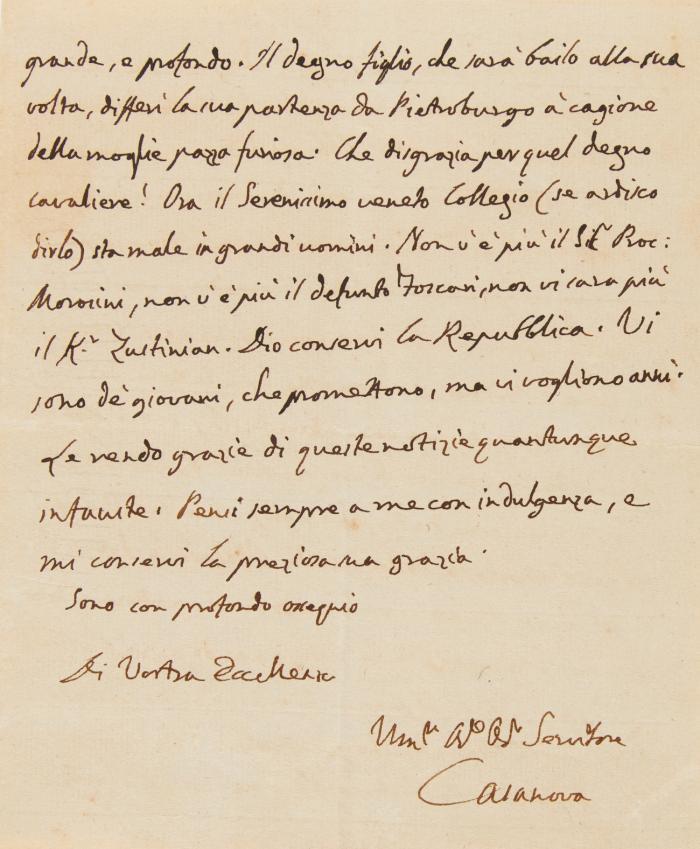 grande, e profondo. Il degno figlio, che sarà bailo alla sua
volta, differì la sua partenza da Pietroburgo à cagione
della moglie pazza furiosa. Che disgrazia per quel degno
cavaliere! Ora il Serenissimo veneto Collegio (se ardisco
dirlo) sta male in grandi uomini. Non v'è più il Sig.r Proc:
Morosini, non v'è più il defunto Foscari, non vi sara più
il K.r Zustinian. Dio conservi la Repubblica. Vi
sono de' giovani, che promettono, ma vi vogliono anni.
Le rendo grazie di queste notizie quantunque
infauste. Pensi sempre a me con indulgenza, e
mi conservi la preziosa sua grazia.
Sono con profondo ossequio
Di Vostra Eccellenza
Um.mo Servitore
Casanova